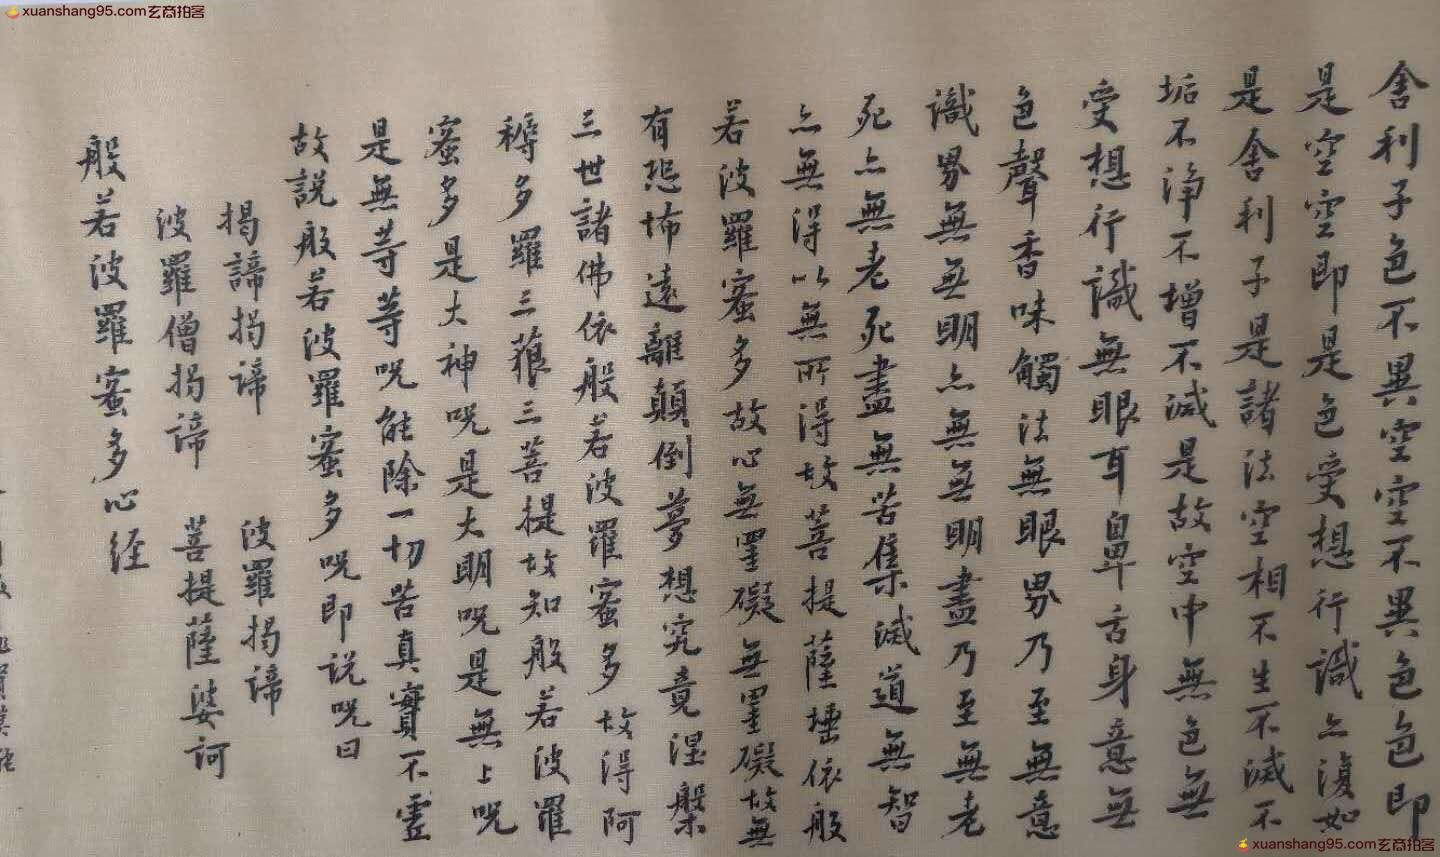 xuanshang95.com玄商拍客
舍利子色不異空空不異色色即
是空空即是色受想行識亦復如
是舍利子是諸法空相不生不滅不
垢不淨不增不減是故空中無色無
受想行識無眼耳鼻舌身意無
色聲香味觸法無眼界乃至無意
識界無無明亦無無明盡乃至無老
死亦無老死盡無苦集滅道無智
亦無得以無所得故菩提薩埵依般
若波羅蜜多故心無罣礙無罣礙故無
有恐怖遠離顛倒夢想究竟涅槃
三世諸佛依般若波羅蜜多故得阿
耨多羅三藐三菩提故知般若波羅
蜜多是大神咒是大明咒是無上咒
是無等等咒能除一切苦真實不虛
故說般若波羅蜜多咒即說咒曰
揭諦揭諦 波羅揭諦
波羅僧揭諦 菩提薩婆訶
般若波羅蜜多心経
xuanshang95.com玄商拍客